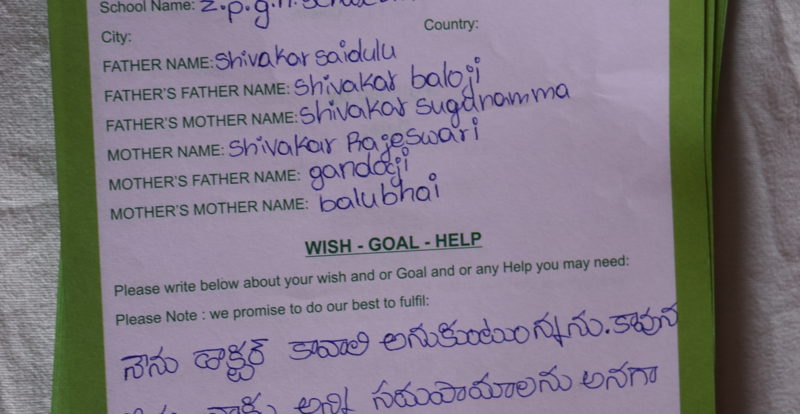 School Name: Z.p.g.H.School
City: Country:
FATHER NAME: Shivakar saidulu
FATHER'S FATHER NAME: Shivakar baloji
FATHER'S MOTHER NAME: Shivakar sugunamma
MOTHER NAME: Shivakar Rajeswari
MOTHER'S FATHER NAME: gandoji
MOTHER'S MOTHER NAME: balubhai
WISH - GOAL - HELP
Please write below about your wish and or Goal and or any Help you may need:
Please Note : we promise to do our best to fulfil:
నేను డాక్టర్ కావాలి అనుకుంటున్నను. కావున
నాకు అన్ని సదుపాయాలను అనగా